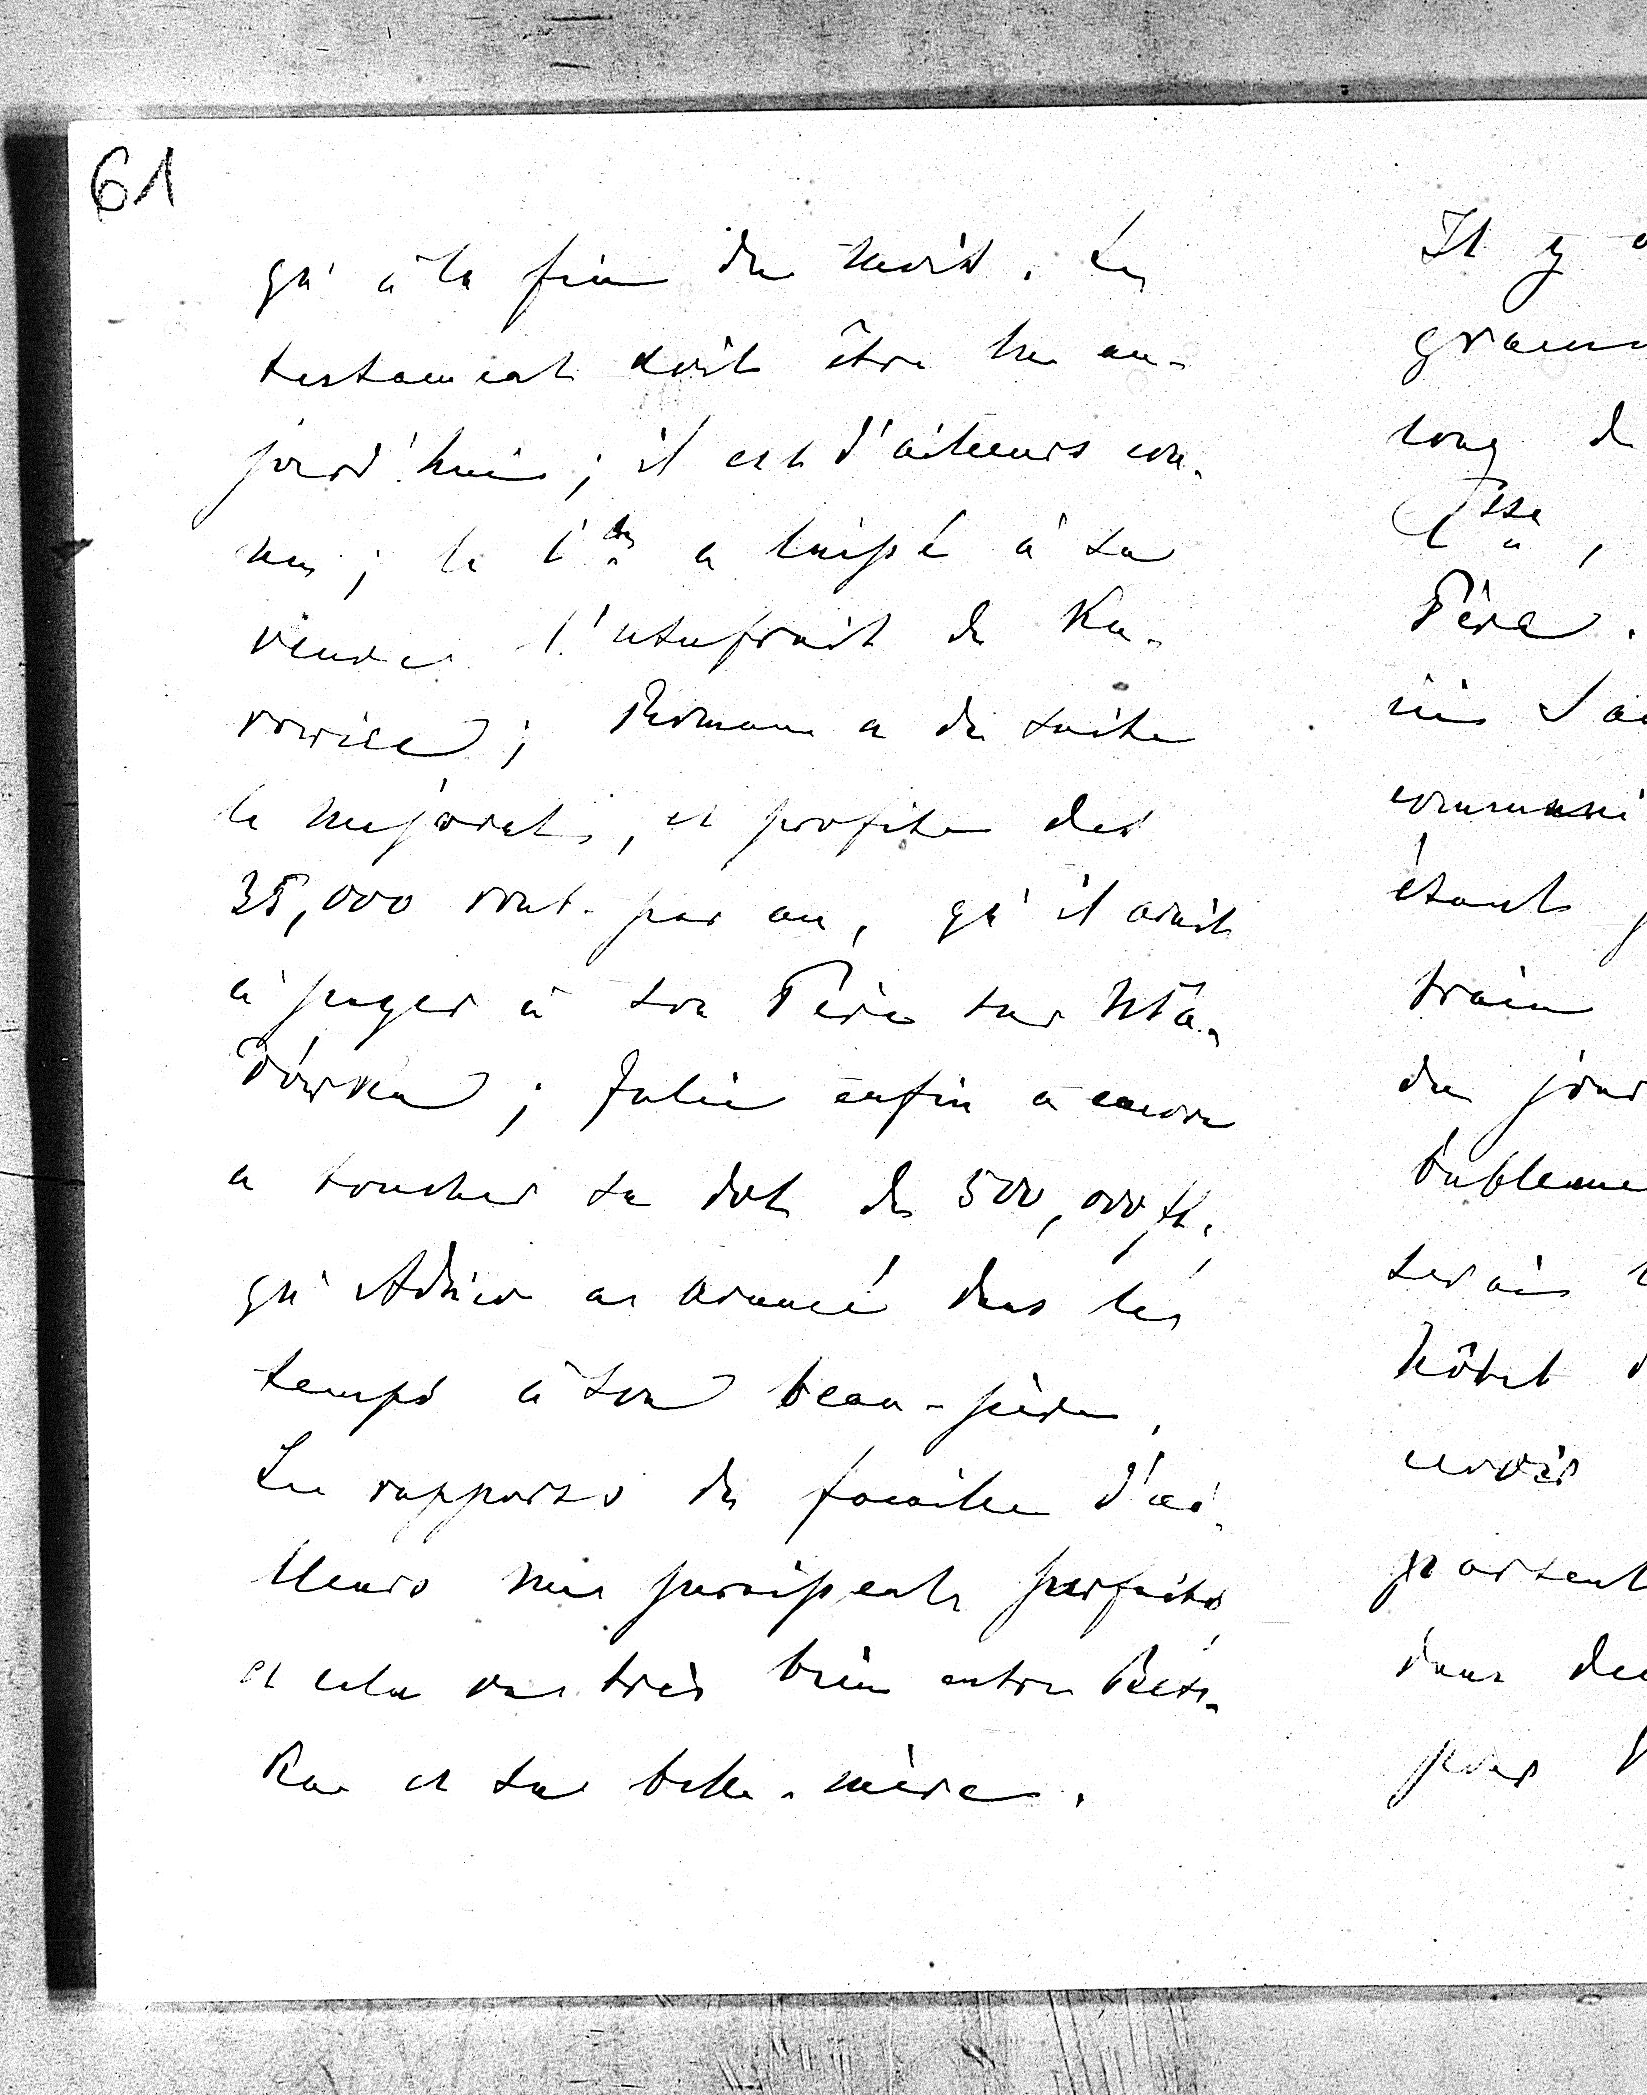 61
qu'à la fin du mois. Le
testament doit être lu au-
jourd'hui; il est d'ailleurs con-
nu; le Cte a laissé à sa
veuve l'usufruit de Ku-
rowice; Romane a de suite
le majorat, et profite des
35,000 roub. par an, qu'il avait
à payer à son Père sur Wła-
dówka; Julie enfin a encore
a toucher sa dot de 500,000 fl.,
qu'Adzio a avancé dans les
temps à son beau-père.
Les rapports de famille d'ai-
lleurs me paraissent parfaits,
et cela va très bien entre Bets-
Ka et sa belle-mère.
Il y
gram
long de
Père.
communi
étant
train
du jour
serais
hôtel
partent
dans
pour